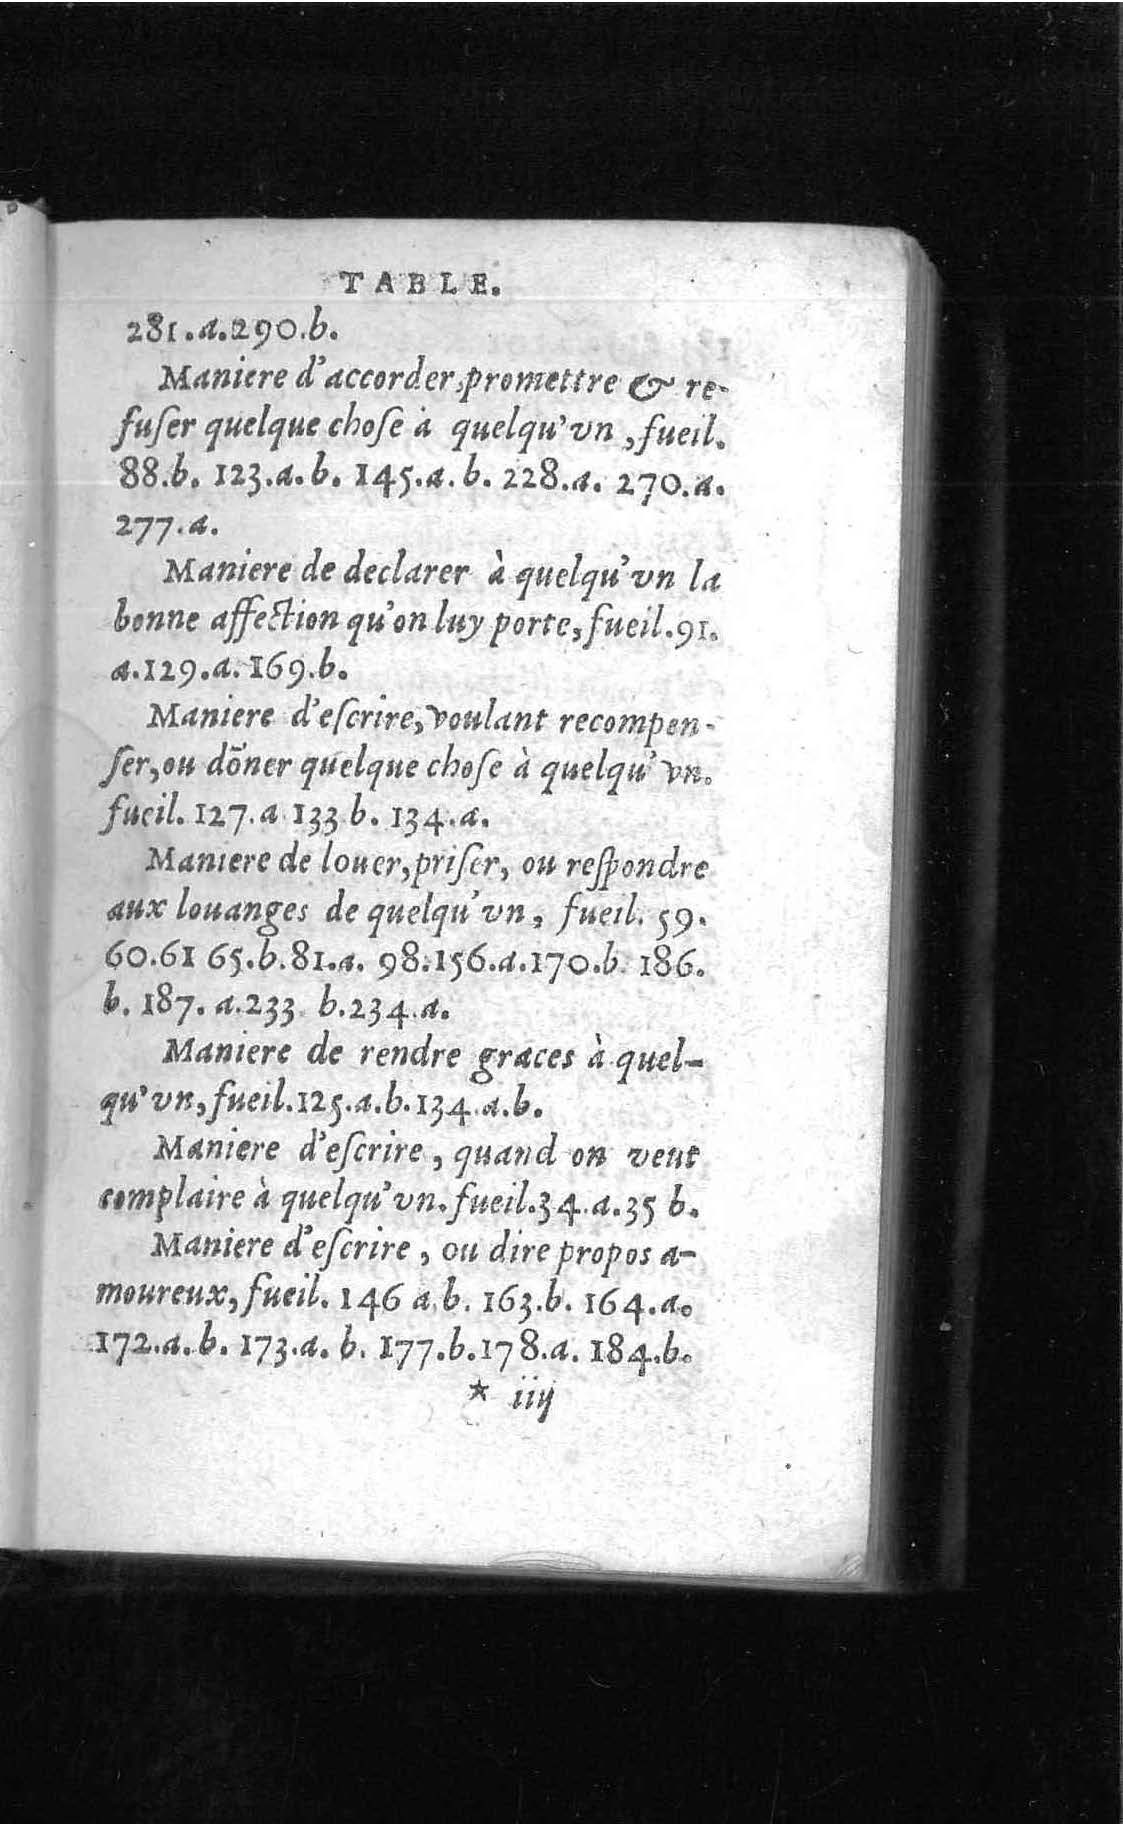 TABLE.
281.a.290.b.
Maniere d'accorder,promettre & re-
fuſer quelque choſe à quelqu'vn ,fueil.
88.b. 123.a.b. 145.a.b. 228.a. 270.a.
277.a.
Maniere de declarer à quelqu'vn la
bonne affection qu'on luy porte, fueil.91.
a.129.a.169.b.
Maniere d'eſcrire, voulant recompen-
ſer,ou dõner quelque choſe à quelqu'vn.
fueil. 127.a 133 b. 134.a.
Maniere de louer,priſer, ou reſpondre
aux louanges de quelqu'vn, fueil. 59.
60.61 65.b.81.a. 98.156.a.170.b. 186.
b. 187. a.233. b.234.a.
Maniere de rendre graces à quel-
qu'vn, fueil.125.a.b.134.a.b.
Maniere d'eſcrire , quand on veut
complaire à quelqu'vn. fueil.34.a.35 b.
Maniere d'eſcrire , ou dire propos a-
moureux, fueil. 146 a.b. 163.b. 164.a.
172.a.b. 173.a. b. 177.b.178.a. 184.b.
* iiij